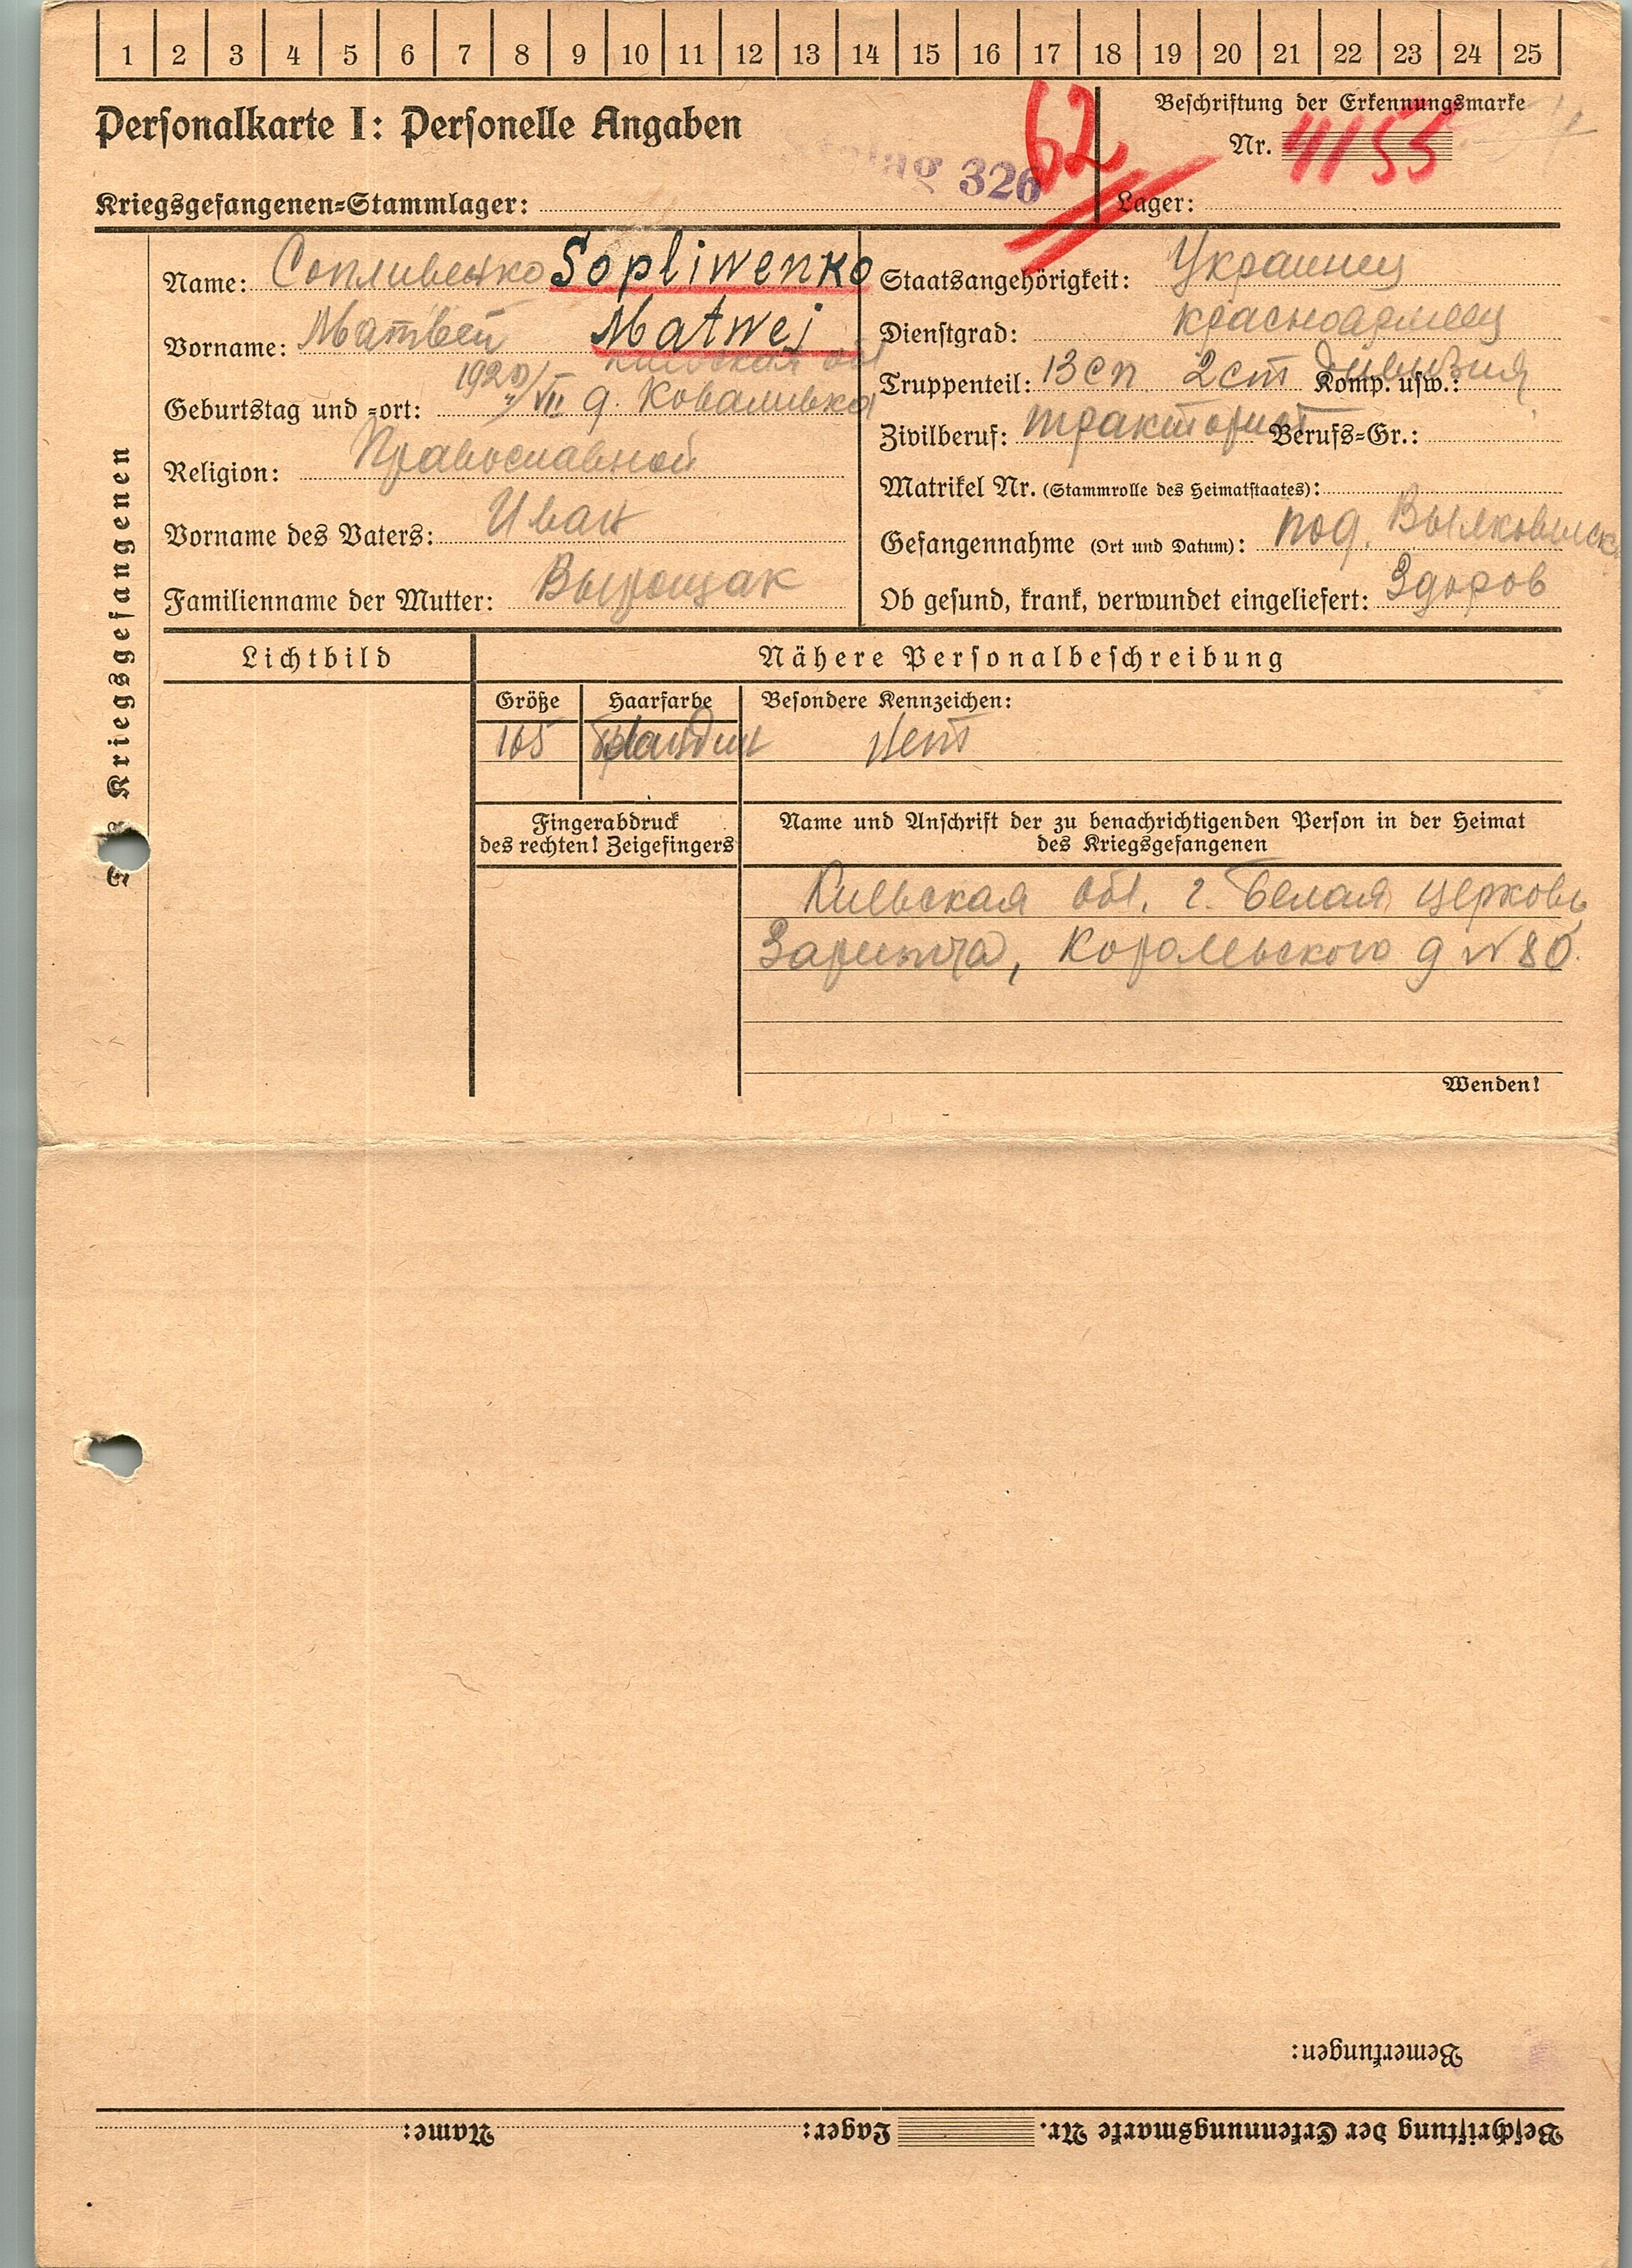 1 2 3 4 5 6 7 8 9 10 11 12 13 14 15 16 17 18 19 20 21 22 23 24 25
Personalkarte I: Personelle Angaben
62
Beschriftung der Erkennungsmarke
Nr. 4155
Stalag 326
Kriegsgefangenen=Stammlager:
Lager:
Des Kriegsgefangenen
Name: Сопливенко Sopliwenko
Vorname: Матвей Matwej
Киевская обл
Geburtstag und =ort: 1920 VII д. Коваливка
Religion: Православной
Vorname des Vaters: Иван
Familienname der Mutter: Вырощак
Staatsangehörigkeit: Украинец
Dienstgrad: красноармеец
Truppenteil: 13 сп 2 ст дивизия Komp. usw.:
Zivilberuf: тракторист Berufs=Gr.:
Matrikel Nr. (Stammrolle des Heimatstaates):
Gefangennahme (Ort und Datum): под. Вылковыск
Ob gesund, krank, verwundet eingeliefert: Здоров
Lichtbild
Nähere Personalbeschreibung
Größe Haarfarbe Besondere Kennzeichen:
165 нет
Fingerabdruck
des rechten! Zeigefingers
Name und Anschrift der zu benachrichtigenden Person in der Heimat
des Kriegsgefangenen
Киевская обл. г. Белая церковь
Королевского д № 80.
Wenden!
Bemerkungen:
Beschriftung der Erkennungsmarke Nr. Lager: Name: